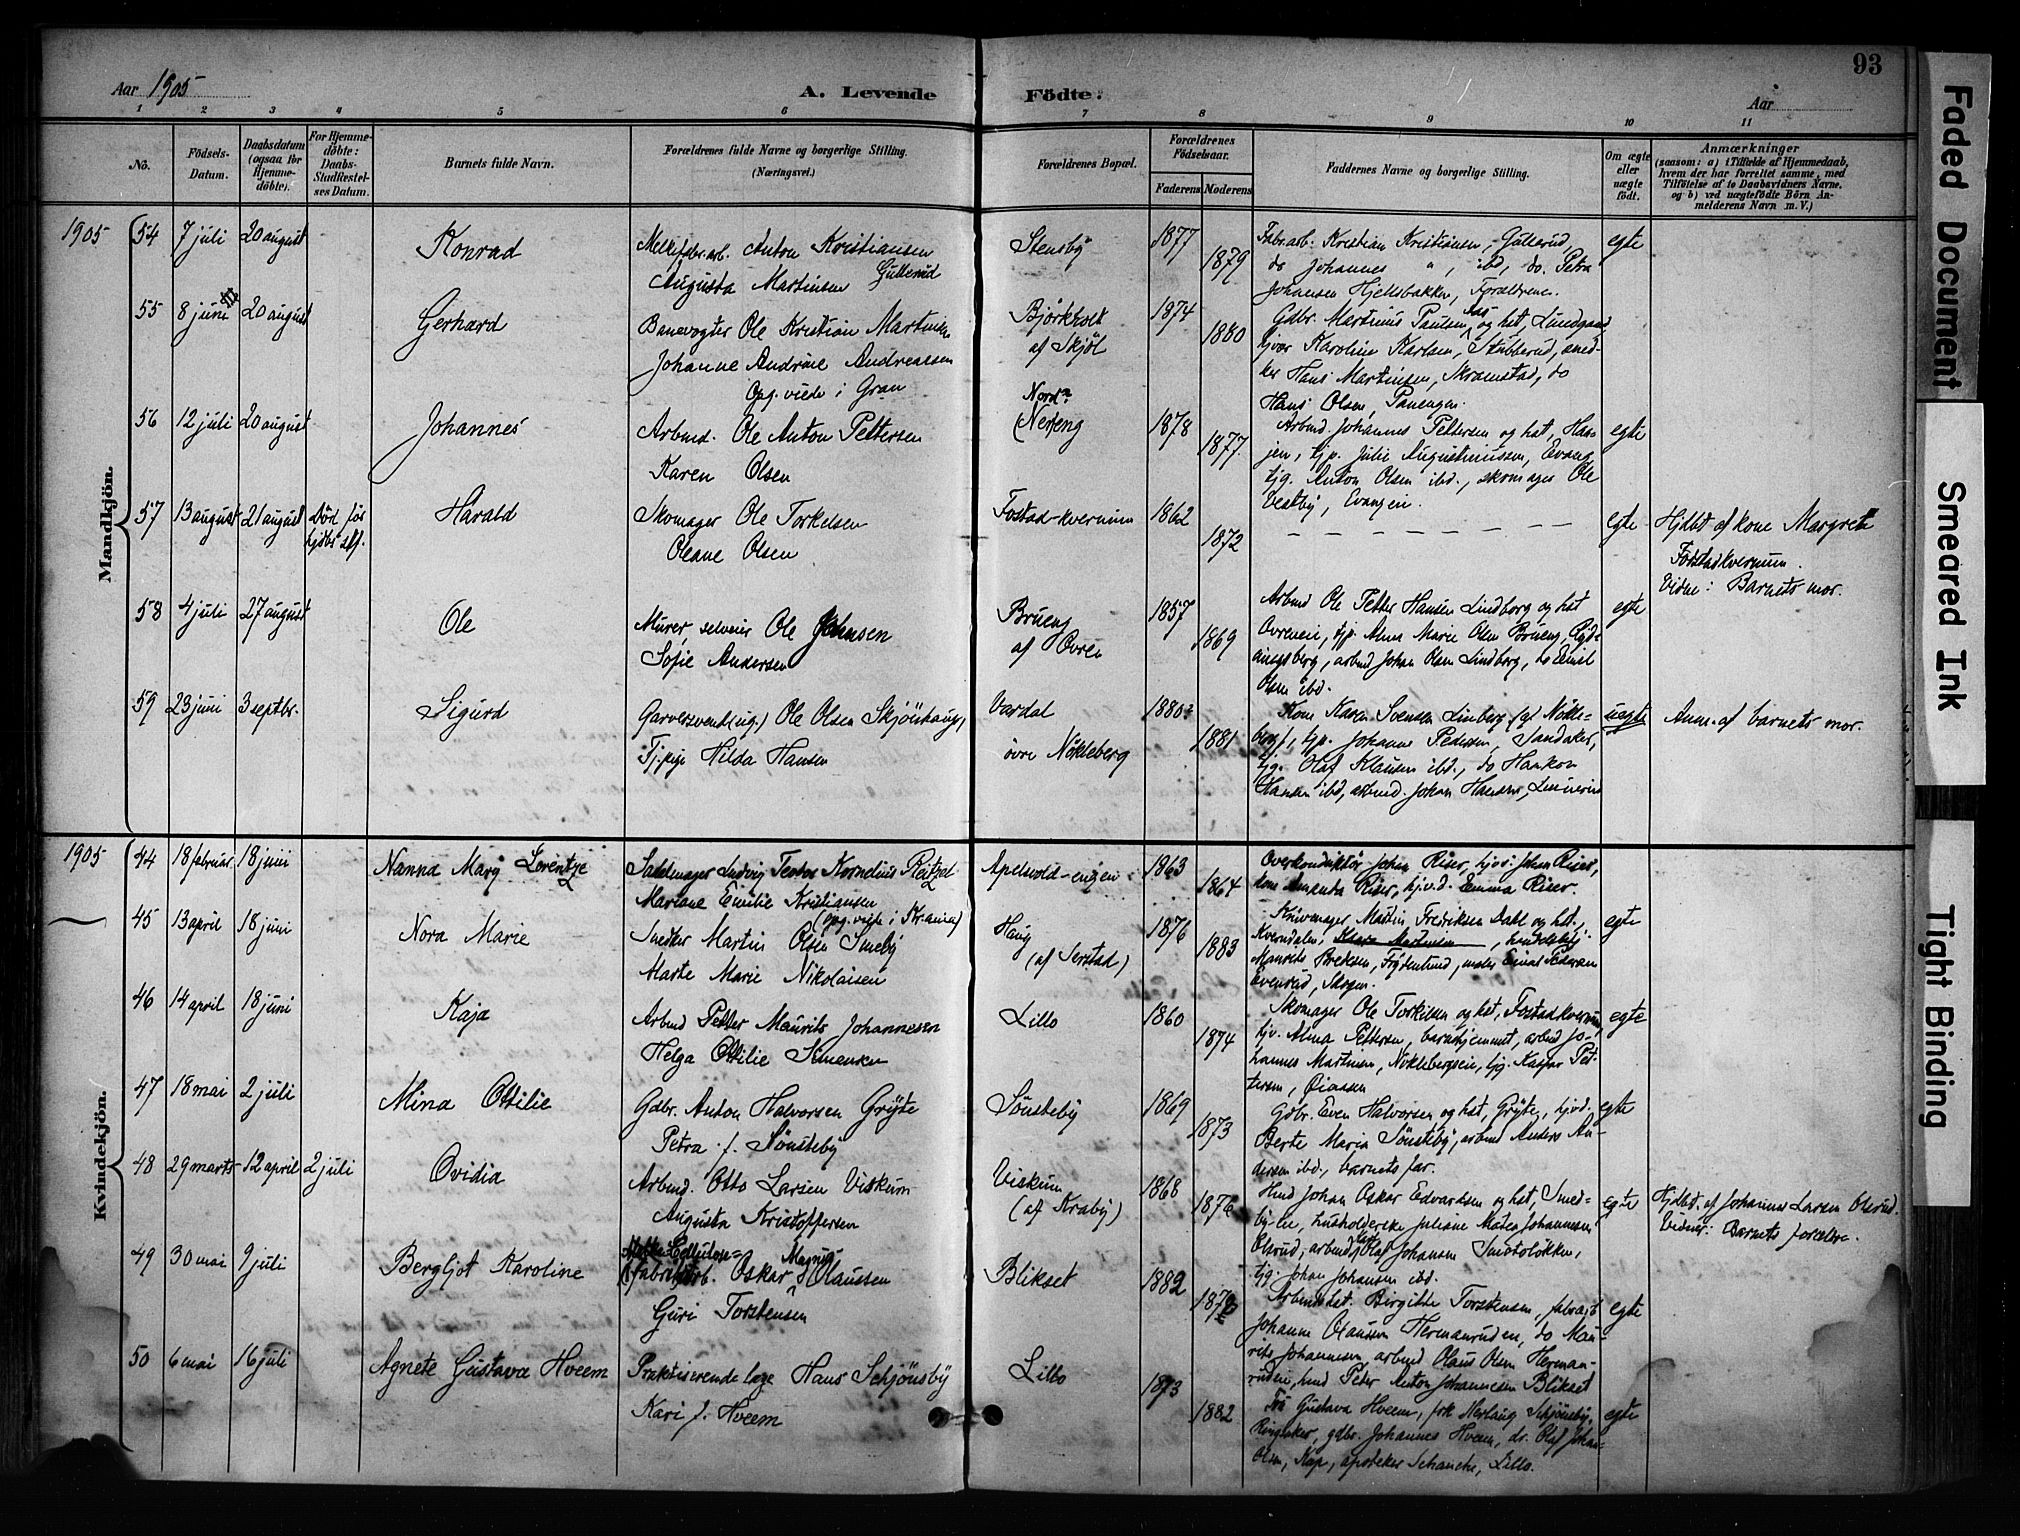 93
Aar 1905
A. Levende Födte.
Aar
1 2 3 4 5 6 7 8 9 10 11
No.
Födsels-Datum.
Daabsdatum (ogsaa for Hjemmedöbte).
For Hjemmedöbte: Daabs-Stadfæstelses Datum.
Barnets fulde Navn.
Forældrenes fulde Navne og borgerlige Stilling. (Næringsvei.)
Forældrenes Bopæl.
Forældrenes Födselsaar.
Faderens Moderens
Faddernes Navne og borgerlige Stilling.
Om ægte eller uægte födt.
Anmærkninger
(saasom: a) i Tilfælde af Hjemmedaab, hvem der har forrettet samme, med Tilföielse af to Daabsvidners Navne, og b) ved uægtefödte Börn Anmelderens Navn m. V.)
Mandkjön.
1905 54 7 juli 20 august Konrad
Anton Kristiansen Gullerud
Augusta Martinsen
Stensby 1877 1879
Fabr.arb. Kristian Kristiansen, Gullerud,
do Johannes " , ibd, do. Petra
Johansen Hjellsbakken, Forældrene.
egte
55 8 juni 20 august Gerhard
Banevogter Ole Kristian Martinsen
Johanne Andrine Andreassen
Opg. viede i Gran
Bjørkholt af Skjöl 1874 1880
Gdbr. Martinus Paulsen og hst, Lundgaard,
Karoline Karlsen, Stubberud, smed-
ker Hans Martinsen, Skramstad, do
Hans Olsen, Paneengen.
56 12 juli 20 august Johannes
Arbmd. Ole Anton Pettersen
Karen Olsen
Nordre Nereng 1878 1877
Arbmd. Johannes Pettersen og hst,
tjp. Julie Augustinussen,
tjg. Anton Olsen ibd., skomager Ole
Vestby,
egte
57 13 august 21 august Død før Harald
Skomager Ole Torkelsen
Oleane Olsen
Fostad-kvernum 1862 1872
– – – – – – –
egte
Hjdbt af kone Margrete
Fostadkvernum.
Vidne: Barnets mor.
58 4 juli 27 august Ole
Murer, selveier Ole Johnsen
Sofie Andersen
Brueng af Øvren 1857 1869
Arbmd Ole Petter Hansen Lindborg og hst
tjp. Alma Marie Olsen Brueng,
arbmd Johan Olsen Lindborg, do Emil
Olsen ibd.
egte
59 23 juni 3 septbr. Sigurd
Garversvend (ug.) Ole Olsen Skjönhaug,
Tj.pige Hilda Hansen
Vardal
øvre Nökleberg 1880 1881
Kone Karen Svensen Linberg (gl Nökle-
berg), tjp. Johanne Pedersen, Sandaker,
tjg. Olaf Klausen ibd., do Haakon
Hansen ibd, arbmd. Johan Hansen,
uegte
Anm. af barnets mor.
Kvindekjön.
1905 44 18 februar 18 juni Nanna Mary Lorentze
Sadelmager Ludvig Teodor Kornelius Reitzel
Mariane Emilie Kristiansen
(opg. viede i Kr.ania)
Apelsvold-engen 1863 1864
Overkonduktör Johan Riser,
kone Amanda Riser, hjv.d. Emma Riser.
45 13 april 18 juni Nora Marie
Snedker Martin Olsen Smeby
Marte Marie Nikolaisen
Haug (af Serstad) 1876 1883
Martin Fredriksen Dahl og hst,
Kverndalen,
Maurits Fredriksen, Frydenlund, maler Einar Pedersen
Evenrud, Skogen.
egte
46 14 april 18 juni Kaja
Arbmd Petter Maurits Johannesen
Helga Otilie Simensen
Lillo 1860 1874
Skomager Ole Torkelsen og hst, Fostadkvernum,
hjv. Alma Pettersen, barnehjemmet, arbmd Jo-
hannes Martinsen, Nöklebergseie, tjg. Kaspar Pet-
tersen, Øiaasen
egte
47 18 mai 2 juli Mina Otilie
Gdbr. Anton Halvorsen Gryte
Petra f. Sønsteby
Sønsteby 1869 1873
Gdbr. Even Halvorsen og hst, Gryte, hjvd.
Berte Maria Sønsteby, arbmd Anders An-
dersen ibd., barnets far.
egte
48 29 marts 12 april 2 juli Ovidia
Arbmd. Otto Larsen Viskum
Augusta Kristoffersen
Viskum (af Kraby) 1868 1876
Hmd Johan Oskar Edvardsen og hst, Smed-
by-eie, husholderske Juliane Matea Johannesen
Olsrud, arbmd Olaf Johansen Smedsløkken,
tjg. Johan Johansen ibd.
egte
Hjdbt. af Johannes Larsen Olsrud.
Vidner: Barnets forældre.
49 30 mai 9 juli Bergljot Karoline
Cellulose-
fabrikarb. Oskar Magnus Olaussen
Guri Torstensen
Blikset 1882 1878
Arbmdshst. Birgitte Torstensen, fabr.arb
Johanne Olausen Hermanruden, do Mau-
rits Johannesen, arbmd Olaus Olsen Herman-
ruden, hmd Peter Anton Johannesen Blikset
egte
50 6 mai 16 juli Agnete Gustava Hveem
Praktiserende læge Hans Schjønsby
Kari f. Hveem
Lillo 1873 1882
Fru Gustava Hveem, frk Nerlaug Schjønsby,
Ringsaker, gdbr. Johannes Hveem, dr. Olaf Johan
Olsen, Kap, apoteker Schanche, Lillo.
egte
Faded Document
Smeared Ink
Tight Binding